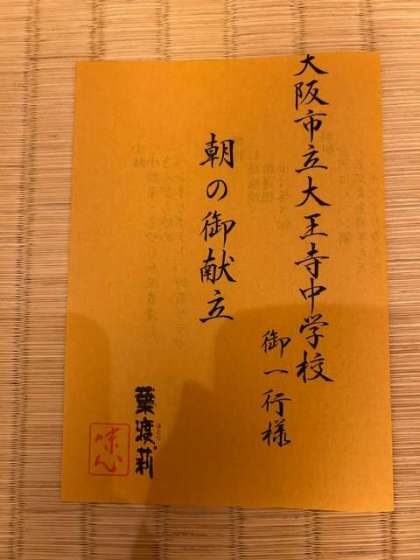 大阪市立大王寺中学校
御一行様
朝の御献立
葉渡莉
はとり
味心